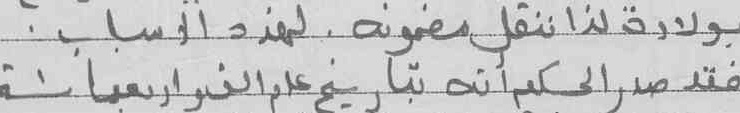 بولادة لذا ننقل مضمونه . لهذه الأسباب :
فقد صدر الحكم أنه بتاريخ عام ألف وأربعمائة